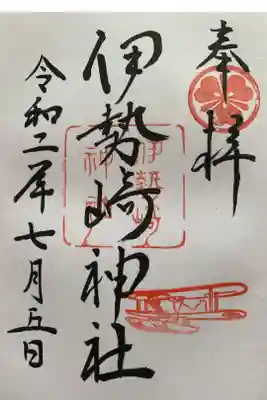 奉拝
伊勢崎神社
令和二年七月五日
伊勢崎
神社